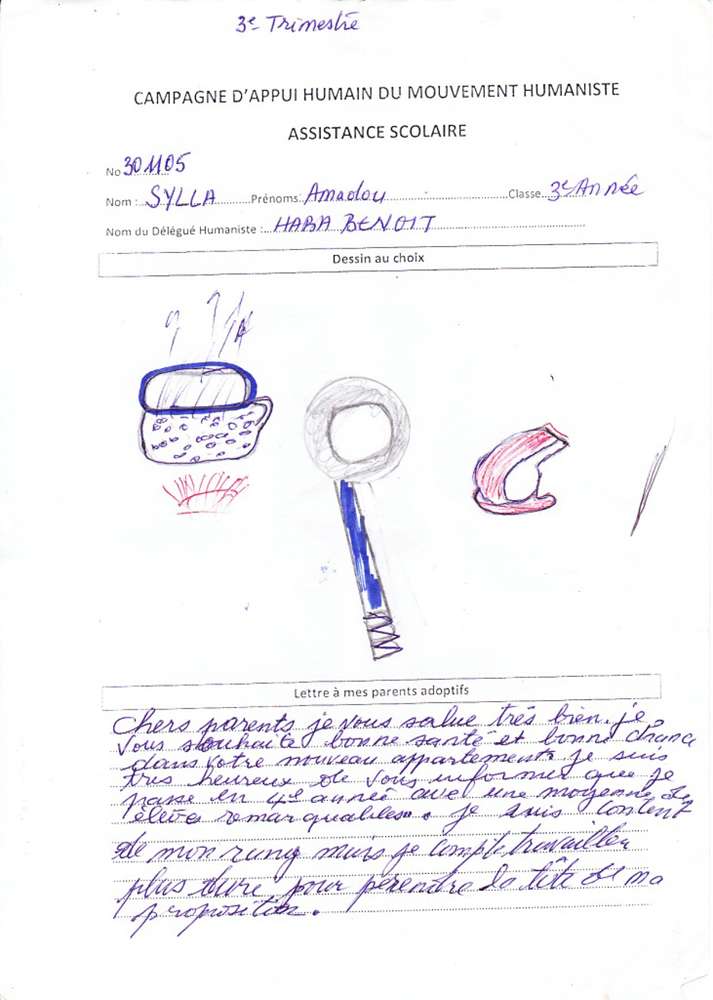 3e Trimestre
CAMPAGNE D'APPUI HUMAIN DU MOUVEMENT HUMANISTE
ASSISTANCE SCOLAIRE
No 301105
Nom : SYLLA Prénoms: Amadou Classe 3e Année
Nom du Délégué Humaniste : HABA BENOIT
Dessin au choix
Lettre à mes parents adoptifs
Chers parents je vous salue très bien. je
vous souhaite bonne santé et bonne chance
dans votre nouveau appartement je suis
très heureux de vous informer que je
passe en 4e année avec une moyenne de
élève remarquables. je suis content
de mon rang mais je compte travailler
plus dure pour perendre la tête de ma
proposition.